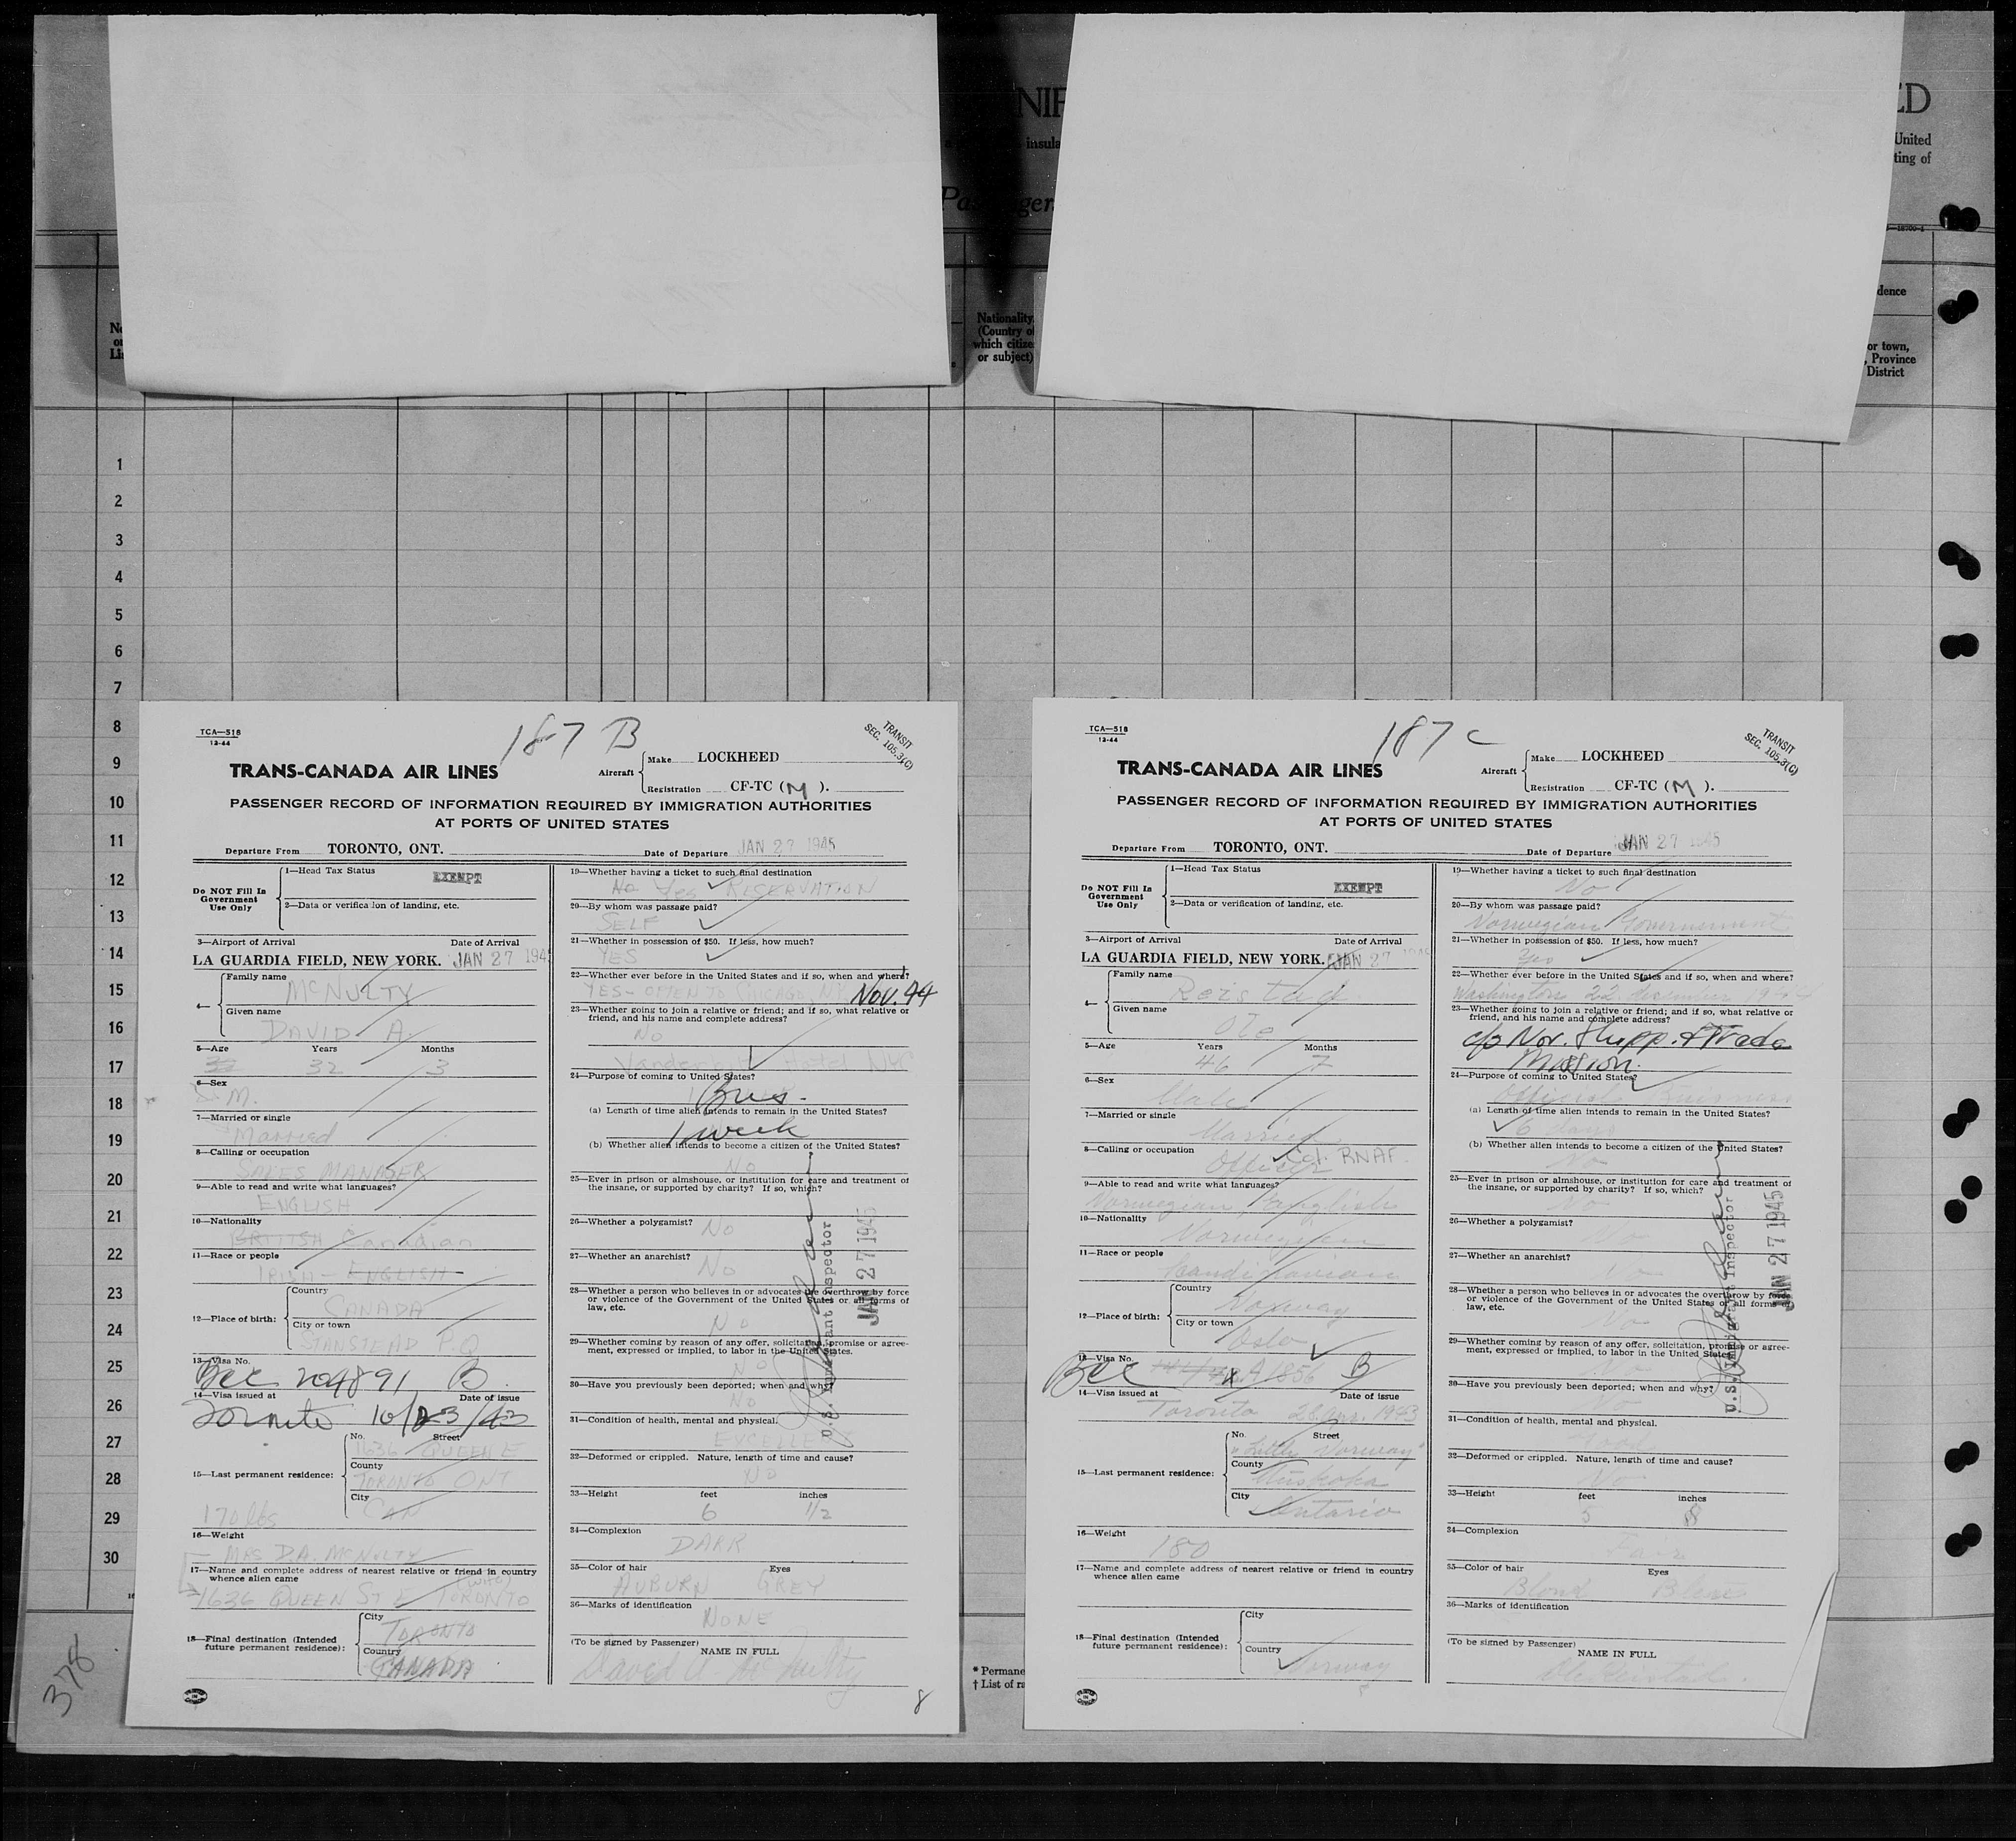 NIF
ED
insula
United
ting of
Passenger
dence
Nationality.
(Country of
which citize
or subject)
or town,
, Province
District
1
2
3
4
5
6
7
8
9
10
11
12
13
14
15
16
17
18
19
20
21
22
23
24
25
26
27
28
29
30
378
* Permane
† List of ra
187 B
TCA—518
12-44
TRANSIT
SEC. 105.3(C)
TRANS-CANADA AIR LINES
Aircraft
Make LOCKHEED
Registration CF-TC (M).
PASSENGER RECORD OF INFORMATION REQUIRED BY IMMIGRATION AUTHORITIES
AT PORTS OF UNITED STATES
Departure From TORONTO, ONT. Date of Departure JAN 27 1945
Do NOT Fill In
Government
Use Only
1—Head Tax Status EXEMPT
2—Data or verification of landing, etc.
3—Airport of Arrival Date of Arrival
LA GUARDIA FIELD, NEW YORK. JAN 27 1945
4—
Family name
McNULTY
Given name
DAVID A.
5—Age Years Months
32 3
6—Sex
M.
7—Married or single
Married
8—Calling or occupation
SALES MANAGER
9—Able to read and write what languages?
ENGLISH
10—Nationality
BRITISH Canadian
11—Race or people
IRISH - ENGLISH
12—Place of birth:
Country
CANADA
City or town
STANSTEAD P.Q.
13—Visa No.
Bcc 204891 B
14—Visa issued at Date of issue
Toronto 10/23/43
15—Last permanent residence:
No. Street
1636 QUEEN E
County
TORONTO ONT
City
CAN
170 lbs
16—Weight
MRS D.A. McNULTY
17—Name and complete address of nearest relative or friend in country
whence alien came
(WIFE)
1636 QUEEN ST E TORONTO
18—Final destination (Intended
future permanent residence):
City
TORONTO
Country
CANADA
19—Whether having a ticket to such final destination
No Yes RESERVATION
20—By whom was passage paid?
SELF
21—Whether in possession of $50. If less, how much?
YES
22—Whether ever before in the United States and if so, when and where?
YES - OFTEN TO CHICAGO, N.Y. Nov. 44
23—Whether going to join a relative or friend; and if so, what relative or
friend, and his name and complete address?
No
Hotel NYC
24—Purpose of coming to United States?
Bus.
(a) Length of time alien intends to remain in the United States?
1 week
(b) Whether alien intends to become a citizen of the United States?
NO
25—Ever in prison or almshouse, or institution for care and treatment of
the insane, or supported by charity? If so, which?
26—Whether a polygamist? No
27—Whether an anarchist?
No
28—Whether a person who believes in or advocates the overthrow by force
or violence of the Government of the United States or all forms of
law, etc.
No
29—Whether coming by reason of any offer, solicitation, promise or agree-
ment, expressed or implied, to labor in the United States.
No
30—Have you previously been deported; when and why?
No
31—Condition of health, mental and physical.
EXCELLENT
32—Deformed or crippled. Nature, length of time and cause?
NO
33—Height feet inches
6 1/2
34—Complexion
DARK
35—Color of hair Eyes
AUBURN GREY
36—Marks of identification
NONE
(To be signed by Passenger)
NAME IN FULL
David A McNulty
8
U.S. Immigrant Inspector
JAN 27 1945
187 C
TCA—518
12-44
TRANSIT
SEC. 105.3(C)
TRANS-CANADA AIR LINES
Aircraft
Make LOCKHEED
Registration CF-TC (M).
PASSENGER RECORD OF INFORMATION REQUIRED BY IMMIGRATION AUTHORITIES
AT PORTS OF UNITED STATES
Departure From TORONTO, ONT. Date of Departure JAN 27 1945
Do NOT Fill In
Government
Use Only
1—Head Tax Status EXEMPT
2—Data or verification of landing, etc.
3—Airport of Arrival Date of Arrival
LA GUARDIA FIELD, NEW YORK. JAN 27
4—
Family name
Reistad
Given name
Ole
5—Age Years Months
46 7
6—Sex
Male
7—Married or single
Married
8—Calling or occupation
Officer Col. RNAF.
9—Able to read and write what languages?
Norwegian, English
10—Nationality
Norwegian
11—Race or people
Scandinavian
12—Place of birth:
Country
Norway
City or town
Oslo
13—Visa No.
Bcc A/856 B
14—Visa issued at Date of issue
Toronto 28 Apr. 1943
15—Last permanent residence:
No. Street
"Little Norway"
County
Muskoka
City
Ontario
16—Weight
180
17—Name and complete address of nearest relative or friend in country
whence alien came
18—Final destination (Intended
future permanent residence):
City
Country
Norway
19—Whether having a ticket to such final destination
No
20—By whom was passage paid?
Norwegian Government
21—Whether in possession of $50. If less, how much?
Yes
22—Whether ever before in the United States and if so, when and where?
Washington 22 December 1944
23—Whether going to join a relative or friend; and if so, what relative or
friend, and his name and complete address?
c/o Nor. Shipp. & Trade
Mission.
24—Purpose of coming to United States?
Official Business
(a) Length of time alien intends to remain in the United States?
6 days
(b) Whether alien intends to become a citizen of the United States?
No
25—Ever in prison or almshouse, or institution for care and treatment of
the insane, or supported by charity? If so, which?
No
26—Whether a polygamist?
No
27—Whether an anarchist?
No
28—Whether a person who believes in or advocates the overthrow by force
or violence of the Government of the United States or all forms of
law, etc.
No
29—Whether coming by reason of any offer, solicitation, promise or agree-
ment, expressed or implied, to labor in the United States.
30—Have you previously been deported; when and why?
No
31—Condition of health, mental and physical.
32—Deformed or crippled. Nature, length of time and cause?
No
33—Height feet inches
5 8
34—Complexion
Fair
35—Color of hair Eyes
Blond Blue
36—Marks of identification
(To be signed by Passenger)
NAME IN FULL
Ole Reistad
U.S. Immigrant Inspector
JAN 27 1945